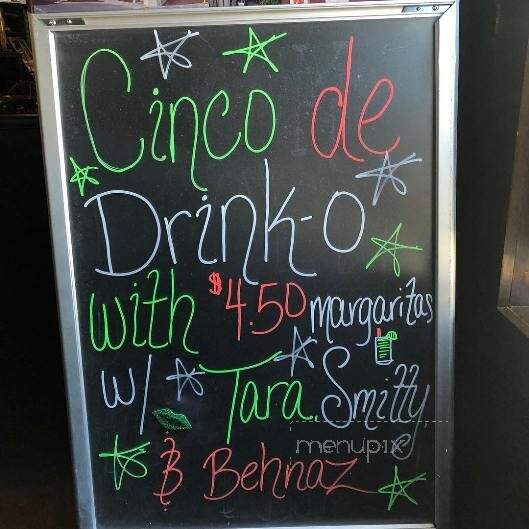 Cinco de
Drink-O
with $4.50 margaritas
w/ Tara, Smitty
& Behnaz
menupix